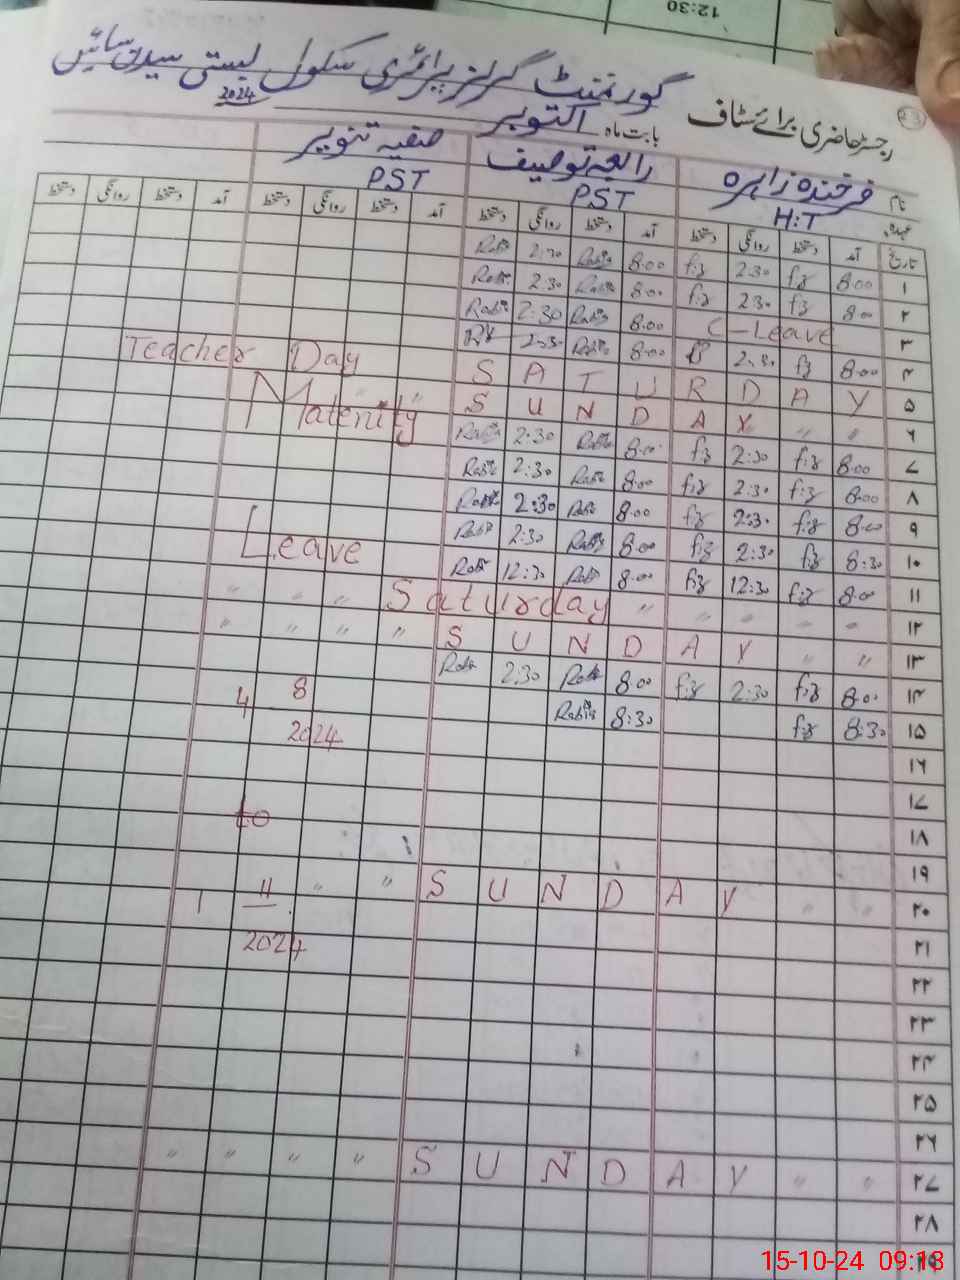 12:30
رجسٹر حاضری برائے سٹاف گورنمنٹ گرلز پرائمری سکول بستی سیدن سائیں
بابت ماہ اکتوبر 2024
نام فرخندہ زاہرہ رابعہ توصیف صفیہ تنویر
عہدہ H:T PST PST
تاریخ آمد دستخط روانگی دستخط آمد دستخط روانگی دستخط آمد دستخط روانگی دستخط آمد دستخط روانگی دستخط
۱ 8:00 f:z 2:30 f:z 8:00 Rabia 2:30 Rabia
۲ 8:00 f:z 2:30 f:z 8:00 Rabia 2:30 Rabia
۳ C-Leave 8:00 Rabia 2:30 Rabia
۴ 8:00 f:z 2:30 8:00 Rabia 2:30
۵ Teacher Day SATURDAY
۶ SUNDAY " "
Maternity
۷ 8:00 f:z 2:30 f:z 8:00 Rabia 2:30 Rabia
۸ 8:00 f:z 2:30 f:z 8:00 Rabia 2:30 Rabia
۹ 8:00 f:z 2:30 f:z 8:00 Rabia 2:30 Rabia
۱۰ 8:30 f:z 2:30 f:z 8:00 Rabia 2:30 Rabia
Leave
۱۱ 8:00 f:z 12:30 f:z 8:00 Rabia 12:30 Rabia
۱۲ " " " Saturday " " " " "
۱۳ " " " " SUNDAY " "
۱۴ 8:00 f:z 2:30 f:z 8:00 Rabia 2:30 Rabia
4 8
۱۵ 8:30 f:z 8:30 Rabia
2024
۱۶
۱۷
to
۱۸
۱۹
۲۰ 1 11 " " SUNDAY " "
۲۱
2024
۲۲
۲۳
۲۴
۲۵
۲۶
۲۷ " " " " SUNDAY " "
۲۸
۲۹
15-10-24 09:13